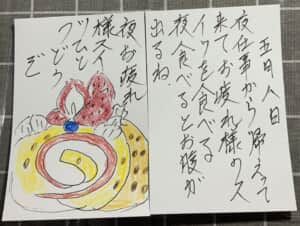 五月八日
夜仕事から帰えって
来てお疲れ様のス
イツを食べる
夜食べるとお腹が
出るね.
夜お疲れ
様スイ
ツひと
つどう
ぞ